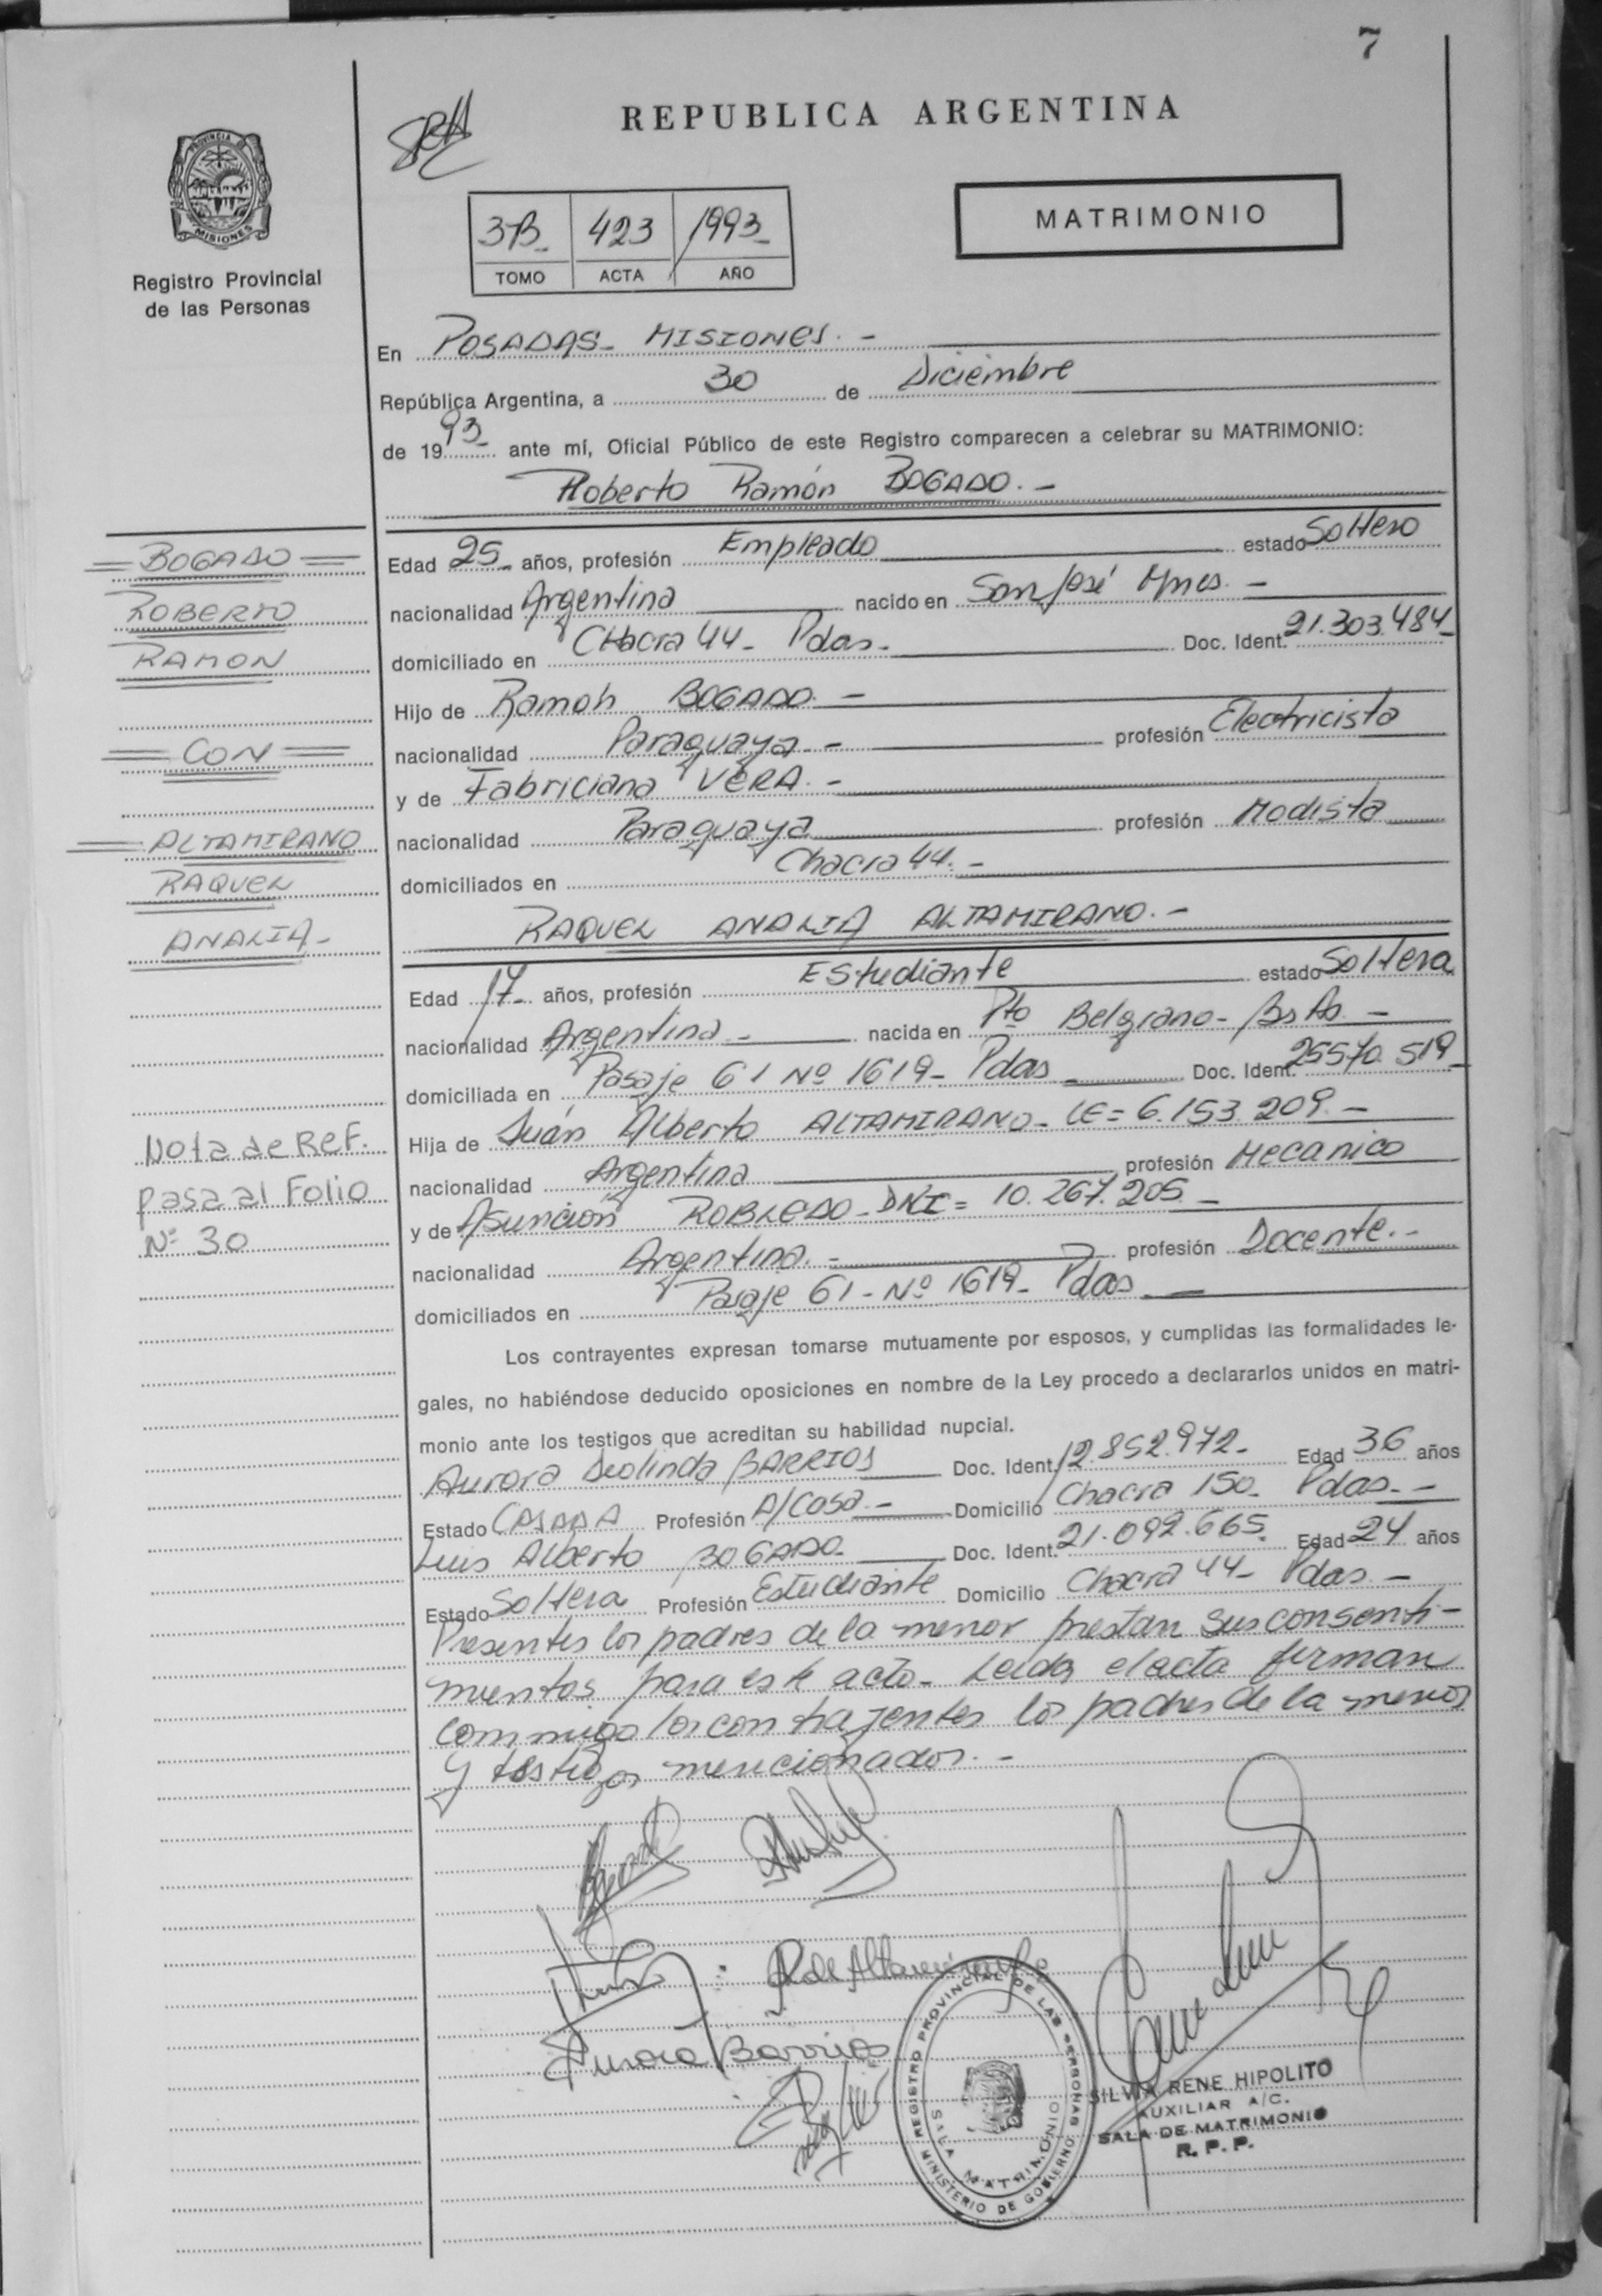 7
REPUBLICA ARGENTINA
PROVINCIA DE
MISIONES
Registro Provincial
de las Personas
3B- 423 1993-
TOMO ACTA AÑO
MATRIMONIO
En POSADAS- MISIONES.-
República Argentina, a 30 de Diciembre
de 1993- ante mí, Oficial Público de este Registro comparecen a celebrar su MATRIMONIO:
Roberto Ramón BOGADO.-
Edad 25- años, profesión Empleado estado Soltero
nacionalidad Argentina nacido en San José Mnes.-
domiciliado en CHacra 44- Pdas- Doc. Ident. 21.303.484-
Hijo de Ramon BOGADO.-
nacionalidad Paraguaya.- profesión Electricista
y de Fabriciana VERA.-
nacionalidad Paraguaya profesión Modista
domiciliados en Chacra 44.-
RAQUEL ANALIA ALTAMIRANO.-
Edad 17- años, profesión EStudiante estado Soltera
nacionalidad Argentina- nacida en Pto Belgrano- Bs As.-
domiciliada en Pasaje 61 Nº 1619- Pdas- Doc. Ident. 25570.519-
Hija de Juan Alberto ALTAMIRANO- LE= 6.153.209.-
nacionalidad Argentina profesión Mecanico
y de Asunción ROBLEDO- DNI= 10.267.205-
nacionalidad Argentina.- profesión Docente.-
domiciliados en Pasaje 61- Nº 1619- Pdas-
Los contrayentes expresan tomarse mutuamente por esposos, y cumplidas las formalidades le-
gales, no habiéndose deducido oposiciones en nombre de la Ley procedo a declararlos unidos en matri-
monio ante los testigos que acreditan su habilidad nupcial.
Aurora Deolinda BARRIOS Doc. Ident. 12.852.972- Edad 36 años
Estado CASADA Profesión A/Casa.- Domicilio Chacra 150- Pdas.-
Luis Alberto BOGADO- Doc. Ident. 21.092.665- Edad 24 años
Estado Soltera Profesión Estudiante Domicilio Chacra 44- Pdas.-
Presentes los padres de la menor prestan sus consenti-
mientos para este acto- Leida el acta firman
commigo los contrayentes los padres de la menor
y testigos mencionados.-
BOGADO
ROBERTO
RAMON
CON
ALTAMIRANO
RAQUEL
ANALIA-
Nota de Ref.
pasa al Folio
Nº 30
R de Altamirano
Aurora Barrios
REGISTRO PROVINCIAL DE LAS PERSONAS
SALA MATRIMONIO
MINISTERIO DE GOBIERNO
SILVIA RENE HIPOLITO
AUXILIAR A/C.
SALA DE MATRIMONIO
R. P. P.